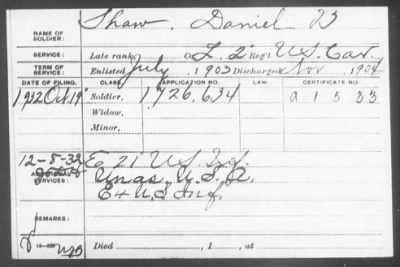 NAME OF SOLDIER: Shaw, Daniel B
SERVICE: Late rank, Co. L, 2" Reg't U.S. Cav.
TERM OF SERVICE: Enlisted July, 1903 Discharged Nov, 1904
DATE OF FILING. CLASS. APPLICATION NO. LAW. CERTIFICATE NO.
1932 Oct 19 Soldier, 1,726,634
Widow,
Minor,
12-5-32 E 21" U.S. Inf.
ADDITIONAL SERVICES: Unas. U.S.A.
E 4 U.S. Inf.
REMARKS:
Died , 1 , at